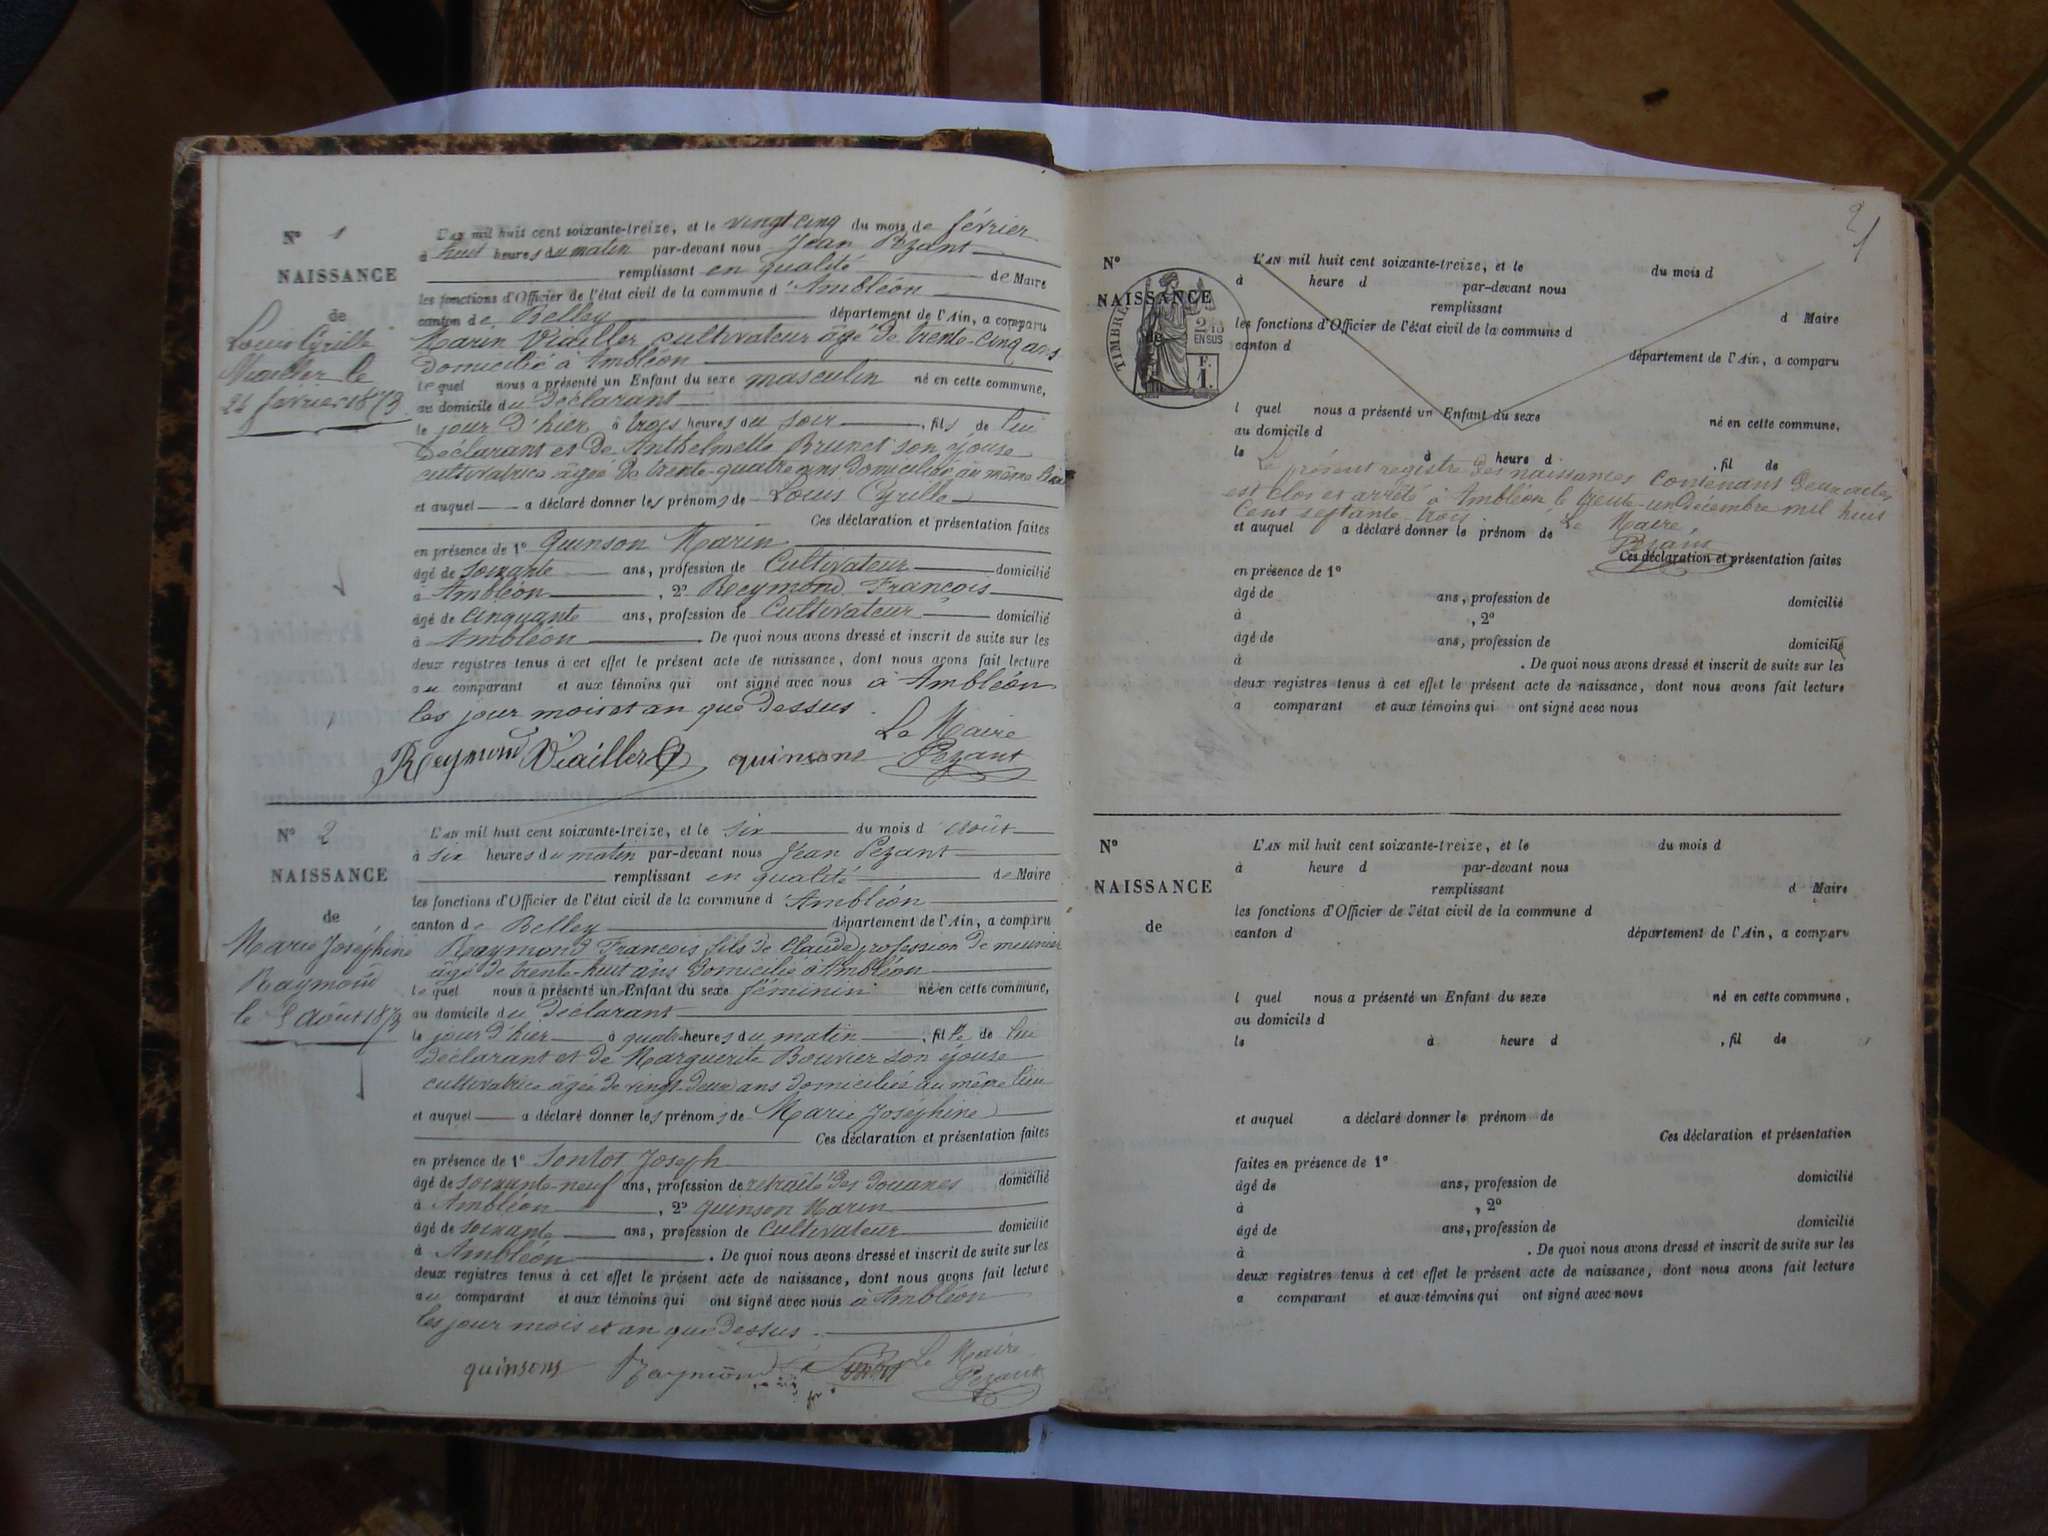 N° 1
NAISSANCE
de
Louis Cyrille
Viailler le
24 février 1873
L'AN mil huit cent soixante-treize, et le vingt cinq du mois de février
à huit heures du matin par-devant nous Jean Pezant
remplissant en qualité de Maire
les fonctions d'Officier de l'état civil de la commune d'Ambléon
canton de Belley département de l'Ain, a comparu
Marin Viailler cultivateur âgé de trente-cinq ans
domicilié à Ambléon
lequel nous a présenté un Enfant du sexe masculin né en cette commune,
au domicile du déclarant
le jour d'hier à trois heures du soir, fils de lui
déclarant et de Anthelmette Brunet son épouse
cultivatrice âgée de trente-quatre ans domiciliée au même lieu
et auquel a déclaré donner les prénoms de Louis Cyrille
Ces déclaration et présentation faites
en présence de 1° Quinson Marin
âgé de soixante ans, profession de Cultivateur domicilié
à Ambléon, 2° Reymond François
âgé de cinquante ans, profession de Cultivateur domicilié
à Ambléon. De quoi nous avons dressé et inscrit de suite sur les
deux registres tenus à cet effet le présent acte de naissance, dont nous avons fait lecture
au comparant et aux témoins qui ont signé avec nous à Ambléon
les jour mois et an que dessus.
Le Maire
Reymond Viailler quinsons Pezant
N° 2
NAISSANCE
de
Marie Joséphine
Raymond
le 5 Août 1873
L'AN mil huit cent soixante-treize, et le six du mois d'Août
à six heures du matin par-devant nous Jean Pezant
remplissant en qualité de Maire
les fonctions d'Officier de l'état civil de la commune d'Ambléon
canton de Belley département de l'Ain, a comparu
Raymond François fils de Claude profession de meunier
âgé de trente-huit ans domicilié à Ambléon
lequel nous a présenté un Enfant du sexe féminin né en cette commune,
au domicile du déclarant
le jour d'hier à quatre heures du matin, fille de lui
déclarant et de Marguerite Bouvier son épouse
cultivatrice âgée de vingt-deux ans domiciliée au même lieu
et auquel a déclaré donner les prénoms de Marie Joséphine
Ces déclaration et présentation faites
en présence de 1° Sontot Joseph
âgé de soixante-neuf ans, profession de retraité des douanes domicilié
à Ambléon, 2° quinson Marin
âgé de soixante ans, profession de Cultivateur domicilié
à Ambléon. De quoi nous avons dressé et inscrit de suite sur les
deux registres tenus à cet effet le présent acte de naissance, dont nous avons fait lecture
au comparant et aux témoins qui ont signé avec nous à Ambléon
les jour mois et an que dessus.
quinsons Raymond Le Maire
Pezant
2
1
N°
NAISSANCE
de
TIMBRE
2/10
EN SUS
F.
1.
L'AN mil huit cent soixante-treize, et le du mois d
à heure d par-devant nous
remplissant d Maire
les fonctions d'Officier de l'état civil de la commune d
canton d département de l'Ain, a comparu
l quel nous a présenté un Enfant du sexe né en cette commune,
au domicile d
le à heure d, fil de
Le présent registre des naissances Contenant deux actes
est clos et arrêté à Ambléon le trente-un décembre mil huit
Cent septante trois. Le Maire,
et auquel a déclaré donner le prénom de
Pezant
Ces déclaration et présentation faites
en présence de 1°
âgé de ans, profession de domicilié
à, 2°
âgé de ans, profession de domicilié
à. De quoi nous avons dressé et inscrit de suite sur les
deux registres tenus à cet effet le présent acte de naissance, dont nous avons fait lecture
a comparant et aux témoins qui ont signé avec nous
N°
NAISSANCE
de
L'AN mil huit cent soixante-treize, et le du mois d
à heure d par-devant nous
remplissant d Maire
les fonctions d'Officier de l'état civil de la commune d
canton d département de l'Ain, a comparu
l quel nous a présenté un Enfant du sexe né en cette commune,
au domicile d
le à heure d, fil de
et auquel a déclaré donner le prénom de
Ces déclaration et présentation
faites en présence de 1°
âgé de ans, profession de domicilié
à, 2°
âgé de ans, profession de domicilié
à. De quoi nous avons dressé et inscrit de suite sur les
deux registres tenus à cet effet le présent acte de naissance, dont nous avons fait lecture
a comparant et aux témoins qui ont signé avec nous